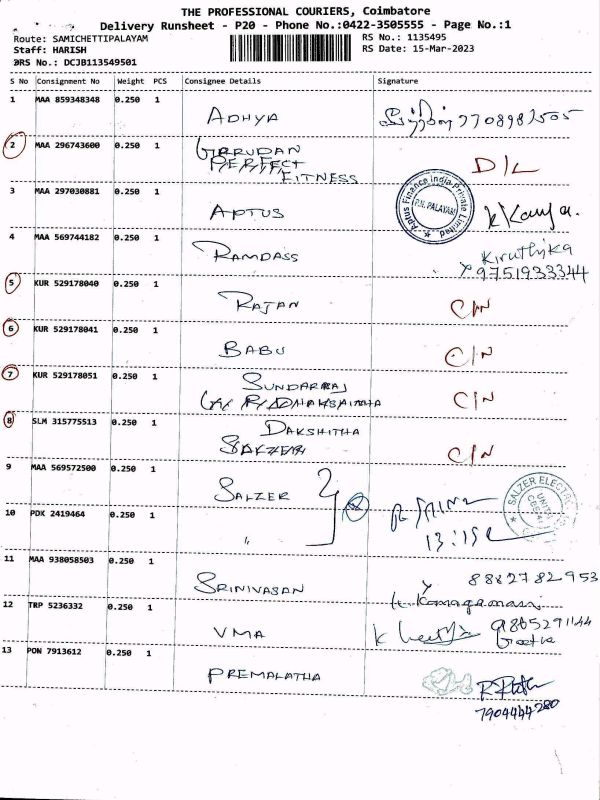 THE PROFESSIONAL COURIERS, Coimbatore
Delivery Runsheet - P20 - Phone No.:0422-3505555 - Page No.:1
Route: SAMICHETTIPALAYAM RS No.: 1135495
Staff: HARISH RS Date: 15-Mar-2023
DRS No.: DCJB113549501
S No Consignment No Weight PCS Consignee Details Signature
1 MAA 859348348 0.250 1 ADHYA
2 MAA 296743600 0.250 1 GARUDAN
PERFECT
FITNESS D/L
3 MAA 297030881 0.250 1 APTUS
Aptus Finance India Private Limited
P.N. PALAYAM
4 MAA 569744182 0.250 1 RAMDASS Kiruthika
9751933344
5 KUR 529178040 0.250 1 RAJAN C/N
6 KUR 529178041 0.250 1 BABU C/N
7 KUR 529178051 0.250 1 SUNDARRAJ
C/N
8 SLM 315775513 0.250 1 DAKSHITHA
C/N
9 MAA 569572500 0.250 1 SALZER
SALZER ELECTR
10 PDK 2419464 0.250 1 "
11 MAA 938058503 0.250 1 SRINIVASAN 8882782953
12 TRP 5236332 0.250 1 VMA Geetha
13 PON 7913612 0.250 1 PREMALATHA
7904444280